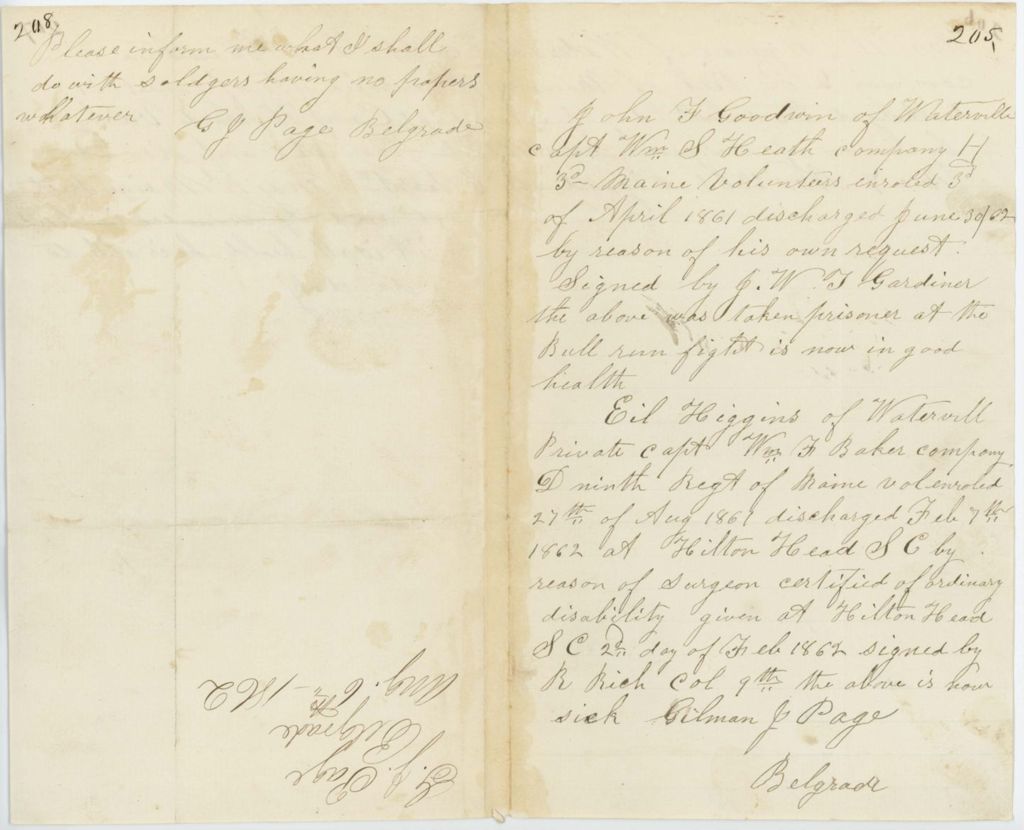 208
Please inform me what I shall
do with soldgers having no papers
whatever
G J Page Belgrade
G. J. Page
Belgrade
Aug. 6th - 1862
205
John F Goodwin of Waterville
capt Wm S Heath company H
3d Maine Volunteers enroled 3d
of April 1861 discharged June 30/62
by reason of his own request.
Signed by J. W. T Gardiner
the above was taken prisoner at the
Bull run fight is now in good
health
Eil Higgins of Watervill
Private capt Wm F Baker company
D ninth Regt of Maine vol enroled
27th of Aug 1861 discharged Feb 7th
1862 at Hilton Head S C by
reason of surgeon certified of ordinary
disability given at Hilton Head
S C 2d day of Feb 1862 signed by
R Rich Col 9th the above is now
sick Gilman J Page
Belgrade